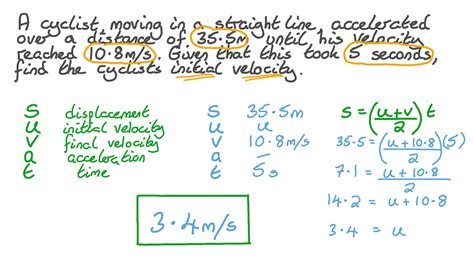 A cyclist, moving in a straight line, accelerated
over a distance of 35.5m until his velocity
reached 10.8m/s. Given that this took 5 seconds,
find the cyclists initial velocity.
S displacement
u initial velocity
v final velocity
a acceleration
t time
S 35.5m
u u
v 10.8m/s
a -
t 5s
3.4m/s
s = (u+v/2) t
35.5 = (u+10.8/2)(5)
7.1 = u+10.8/2
14.2 = u+10.8
3.4 = u